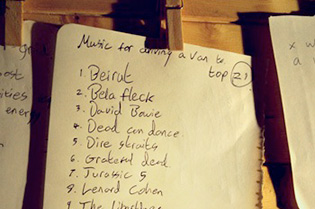 Music for driving a van to.
top 21
1. Beirut
2. Bela fleck
3. David Bowie
4. Dead can dance.
5. Dire straits
6. Grateful dead.
7. Jurassic 5
8. Lenard Cohen
9. The
ost
ities
energ
x w
a